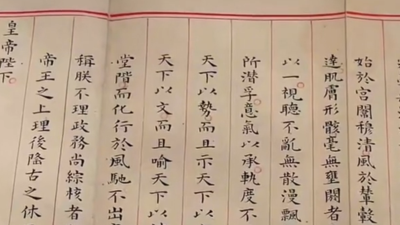 始於宮闈穆清風於輦轂
違肌膚形骸毫無壅閼者
以一視聽不亂無散漫飄
所潛孚意氣以承軌度不
天下以勢而且示天下以
天下以文而且喻天下以
堂階而化行於風馳不出
稱朕不理政務尚綜核者
帝王之上理復隆古之休
皇帝陛下